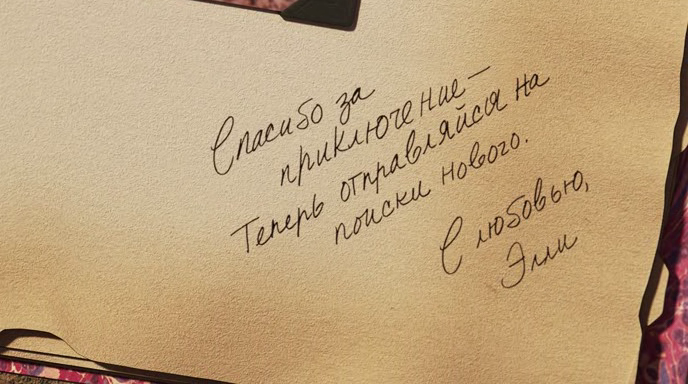 Спасибо за
приключение—
Теперь отправляйся на
поиски нового.
С любовью,
Элли